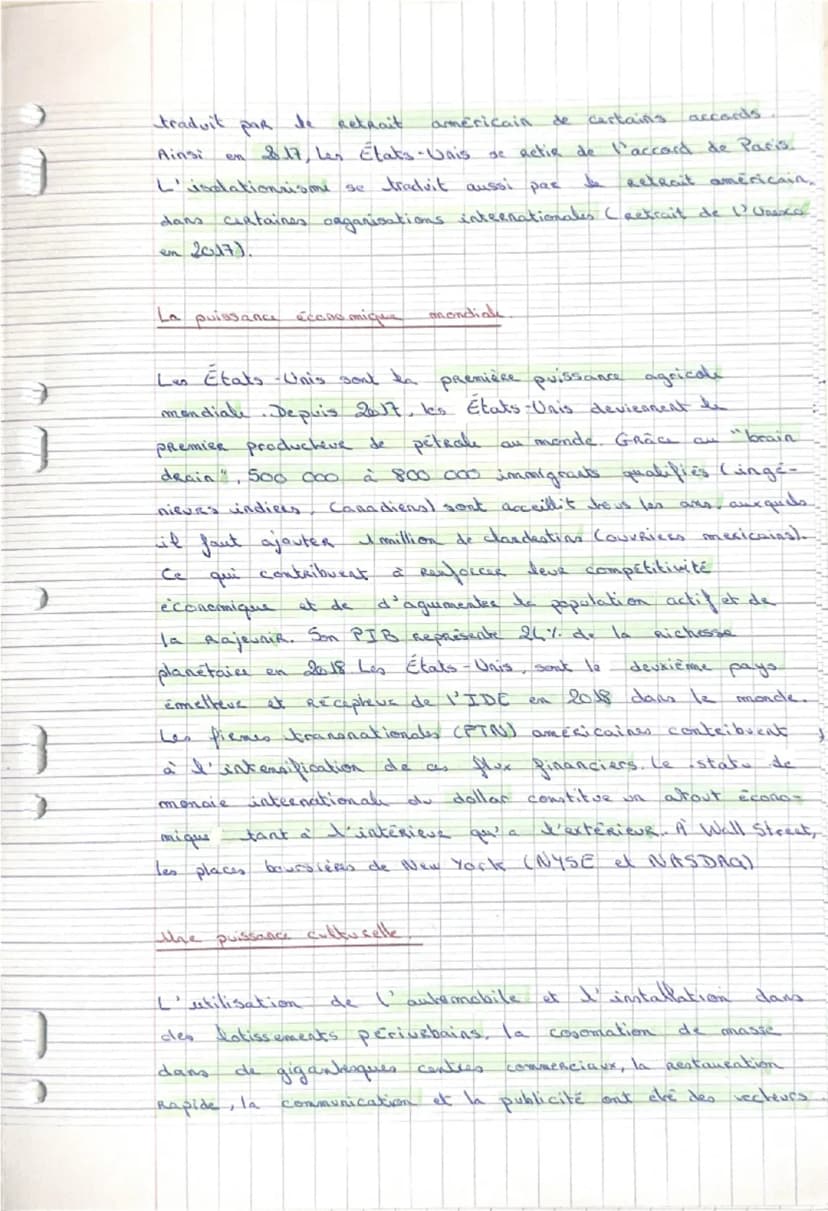 traduit par le retrait américain de certains accords.
Ainsi en 2017, les États-Unis se retire de l'accord de Paris.
L'isolationnisme se traduit aussi par le retrait américain,
dans certaines organisations internationales (retrait de l'Unesco
en 2017).
La puissance économique mondiale.
Les États-Unis sont la première puissance agricole
mondiale. Depuis 2017, les États-Unis deviennent le
premier producteur de pétrole au monde. Grâce au "brain
drain", 500 000 à 800 000 immigrants qualifiés (ingé-
nieurs indiens, Canadiens) sont acceillit tous les ans, auxquels
il faut ajouter 1 million de clandestins (ouvriers mexicains).
Ce qui contribuent à renforcer leur compétitivité
économique et de d'agumenter la population actif et de
la rajeunir. Son PIB représente 24% de la richesse
planétaire en 2018 Les États-Unis, sont le deuxième pays
émetteur et récepteur de l'IDE en 2018 dans le monde.
Les firmes transnationales (FTN) américaines contribuent
à l'intensification de ces flux financiers. Le statu de
monaie internationale du dollar constitue un atout écono-
mique tant à l'intérieur qu'a l'extérieur. A Wall Street,
les places boursières de New York (NYSE et NASDAQ)
Une puissance culturelle.
L'utilisation de l'automobile et l'installation dans
des lotissements périurbains, la cosomation de masse
dans de gigantesques centres commerciaux, la restauration
rapide, la communication et la publicité ont été des vecteurs